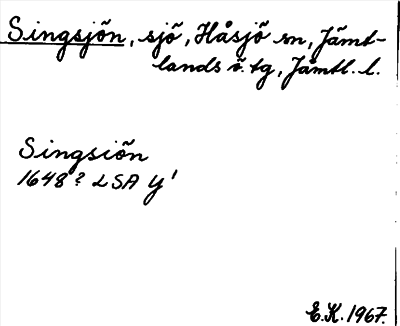 Singsjön, sjö, Håsjö sn, Jämt-
lands ö. tg, Jämtl. l.
Singsiön
1648? LSA Y¹
E.K. 1967.